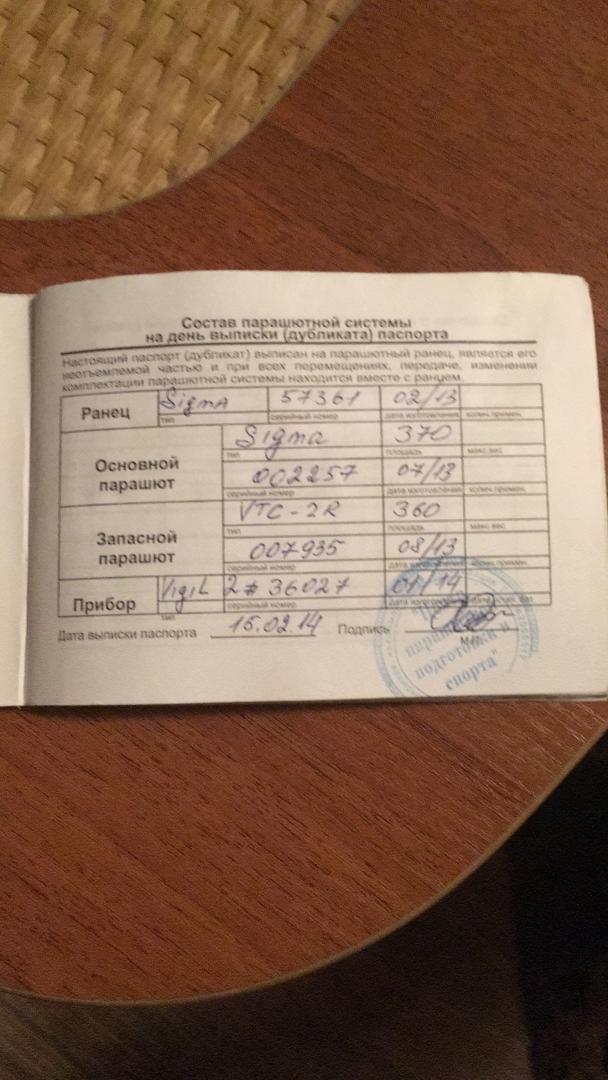 Состав парашютной системы
на день выписки (дубликата) паспорта
Настоящий паспорт (дубликат) выписан на парашютный ранец, является его
неотъемлемой частью и при всех перемещениях, передаче, изменении
комплектации парашютной системы находится вместе с ранцем.
Ранец Sigma 57361 02/13
тип серийный номер дата изготовления колич.примен.
Основной парашют
Sigma 370
тип площадь макс.вес
002257 07/13
серийный номер дата изготовления колич.примен.
Запасной парашют
VTC-2R 360
тип площадь макс.вес
007935 08/13
серийный номер дата изготовления колич.примен.
Прибор Vigil 2# 36027 01/14
тип серийный номер дата изготовления
Дата выписки паспорта 15.02.14 Подпись
М.П.
подготовки и
спорта"